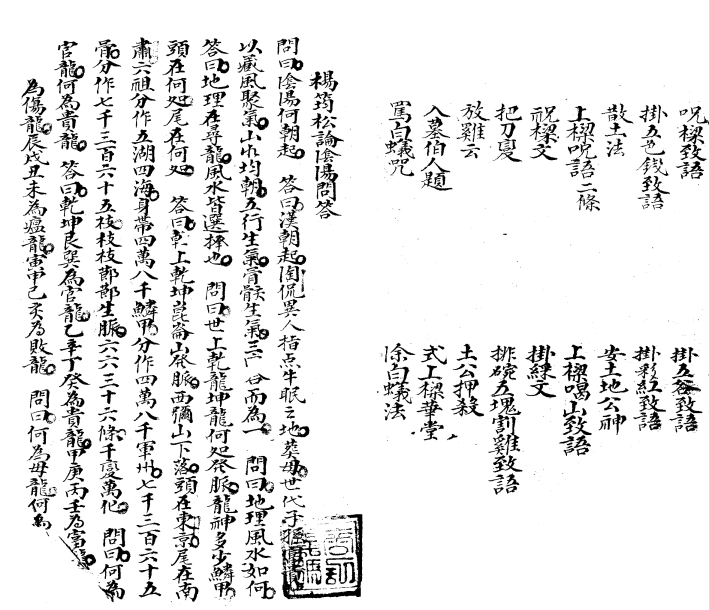 呪樑致語
掛五色錢致語
散土法
上樑呪語二條
祝樑文
把刀䆕
放雞云
入墓伯人題
罵白蟻咒
掛五谷致語
掛彩紅致語
安土地公神
上樑喝山致語
掛綵文
排碗五塊割雞致語
土公押殺
式上樑華堂
除白蟻法
楊筠松論陰陽問答
問曰陰陽何朝起 答曰漢朝起陶侃異人指点牛眠之地葬母世代子
以藏風聚氣山水均朝五行生氣骨骸生氣三 合而為一 問曰地理風水如何
答曰地理在尋龍風水皆選擇也 問曰世上乾龍坤龍何処發脈龍神多少鱗甲
頭在何処尾在何処 答曰乾上乾坤崑崙山發脈西彌山下落頭在東京尾在南
肅六祖分作五湖四海身帶四萬八千鱗甲分作四萬八千軍州七千三百六十五
骨分作七千三百六十五枝枝枝節節生脈六六三十六條千變萬化 問曰何為
官龍何為貴龍 答曰乾坤艮巽為官龍乙辛丁癸為貴龍甲庚丙壬為富龍
為傷龍辰戌丑未為瘟龍寅申巳亥為敗龍 問曰何為母龍何為